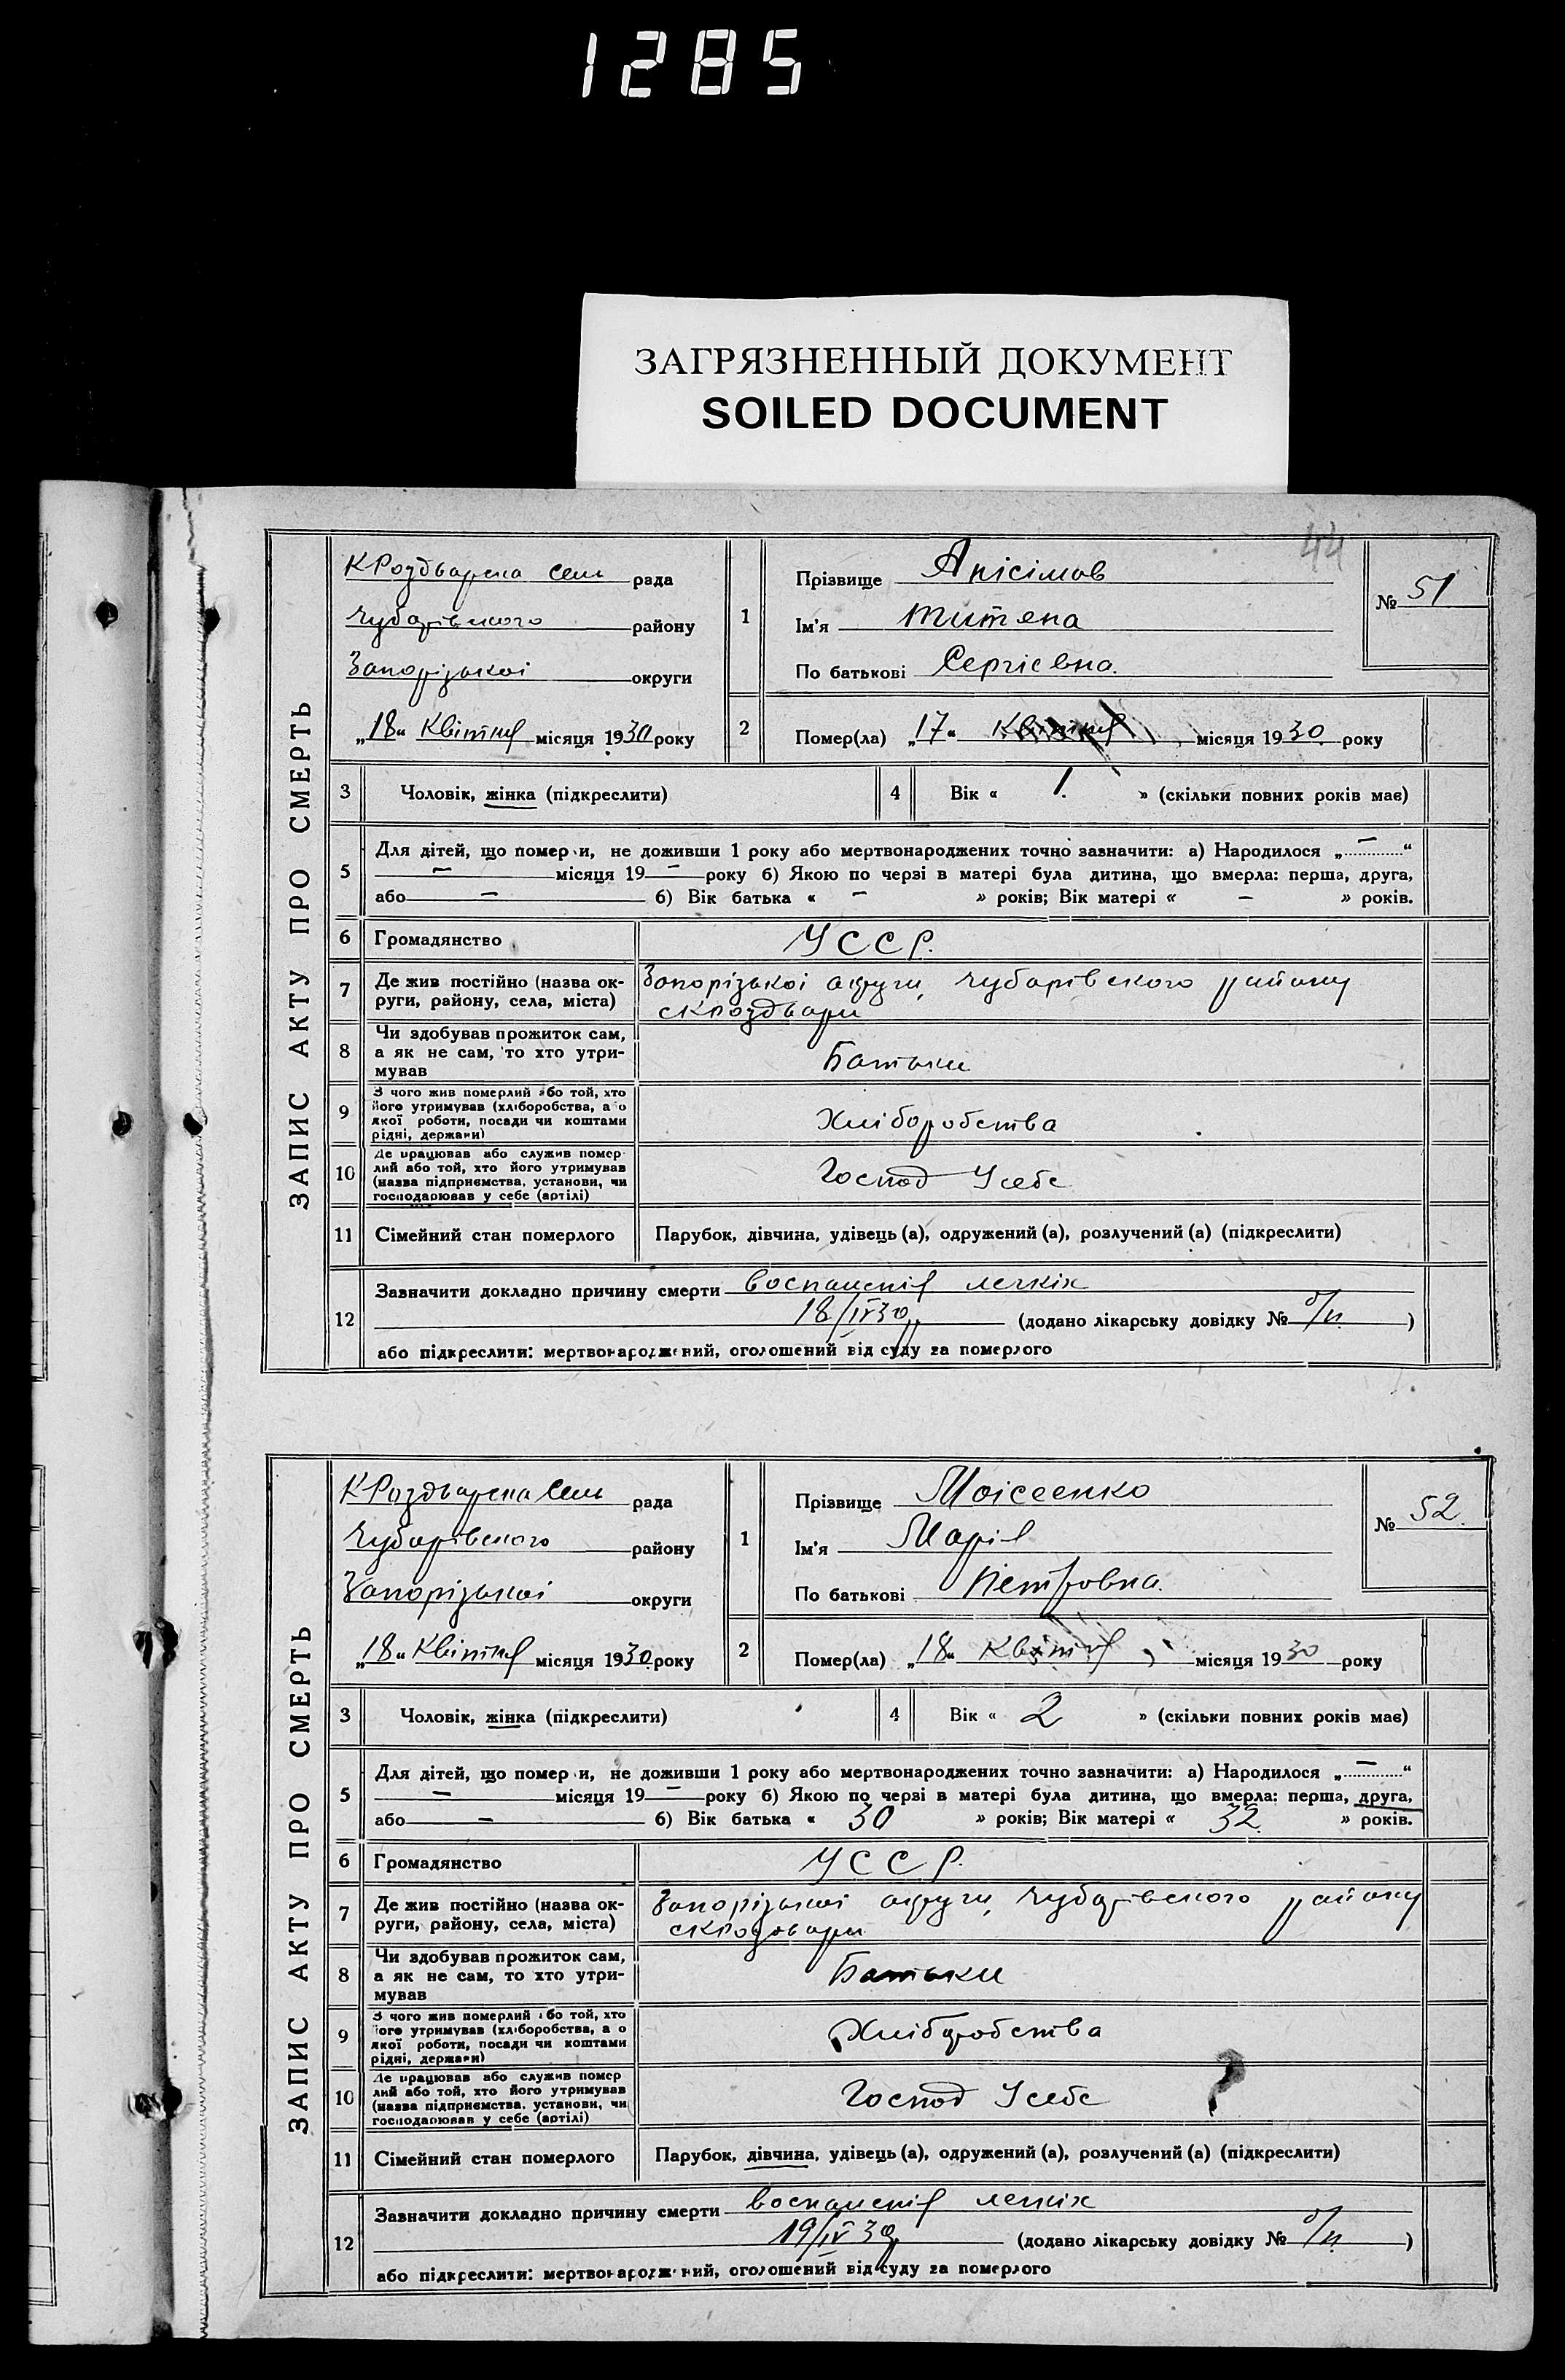 1285
ЗАГРЯЗНЕННЫЙ ДОКУМЕНТ
SOILED DOCUMENT
44
ЗАПИС АКТУ ПРО СМЕРТЬ
КРоздварска Сель рада
Чубарівського району
Запорізької округи
„18“ Квітня місяця 1930 року
1
Прізвище Анісімов
Ім'я Титяна
По батькові Сергієвна.
№ 51
2 Помер(ла) „17“ Квітня місяця 1930 року
3 Чоловік, жінка (підкреслити)
4 Вік « 1. » (скільки повних років має)
5 Для дітей, що померли, не доживши 1 року або мертвонароджених точно зазначити: а) Народилося „ — “
— місяця 19 — року б) Якою по черзі в матері була дитина, що вмерла: перша, друга,
або — б) Вік батька « — » років; Вік матері « — » років.
6 Громадянство УССР.
7 Де жив постійно (назва округи, району, села, міста) Запорізької округи, Чубарівского району
8 Чи здобував прожиток сам,
а як не сам, то хто утри-
мував Батьки
9 З чого жив померлий або той, хто
його утримував (хліборобства, а о
якої роботи, посади чи коштами
рідні, держави) Хліборобства
10 Де працював або служив помер
лий або той, хто його утримував
(назва підприємства, установи, чи
господарював у себе (артілі) Господ Усебе
11 Сімейний стан померлого Парубок, дівчина, удівець (а), одружений (а), розлучений (а) (підкреслити)
12 Зазначити докладно причину смерти воспаления легкіх
18/IV 30 (додано лікарську довідку № )
або підкреслити: мертвонароджений, оголошений від суду за померлого
ЗАПИС АКТУ ПРО СМЕРТЬ
КРоздварска Сель рада
Чубарівського району
Запорізької округи
„18“ Квітня місяця 1930 року
1
Прізвище Моісеенко
Ім'я Марія
По батькові Петровна.
№ 52.
2 Помер(ла) „18“ Квітня місяця 1930 року
3 Чоловік, жінка (підкреслити)
4 Вік « 2 » (скільки повних років має)
5 Для дітей, що померли, не доживши 1 року або мертвонароджених точно зазначити: а) Народилося „ — “
— місяця 19 — року б) Якою по черзі в матері була дитина, що вмерла: перша, друга,
або — б) Вік батька « 30 » років; Вік матері « 32. » років.
6 Громадянство УССР.
7 Де жив постійно (назва округи, району, села, міста) Запорізької округи, Чубарівского району
8 Чи здобував прожиток сам,
а як не сам, то хто утри-
мував Батьки
9 З чого жив померлий або той, хто
його утримував (хліборобства, а о
якої роботи, посади чи коштами
рідні, держави) Хліборобства
10 Де працював або служив помер
лий або той, хто його утримував
(назва підприємства, установи, чи
господарював у себе (артілі) Господ Усебе
11 Сімейний стан померлого Парубок, дівчина, удівець (а), одружений (а), розлучений (а) (підкреслити)
12 Зазначити докладно причину смерти воспаления легкіх
19/IV 30 (додано лікарську довідку № )
або підкреслити: мертвонароджений, оголошений від суду за померлого